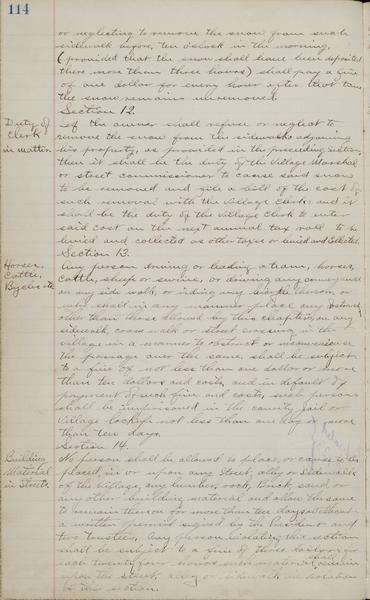 114
or neglecting to remove the snow from such
sidewalk before ten o'clock in the morning,
(provided that the snow shall have been deposited
there more than three hours) shall pay a fine
of one dollar for every hour after that time
the snow remains unremoved.
Section 12.
Duty of
Clerk
in matter.
If the owner shall refuse or neglect to
remove the snow from the sidewalks adjoining
his property, as provided in the preceeding section,
then it shall be the duty of the Village Marshal
or street commissioner to cause said snow
to be removed and file a bill of the cost of
such removal with the Village Clerk, and it
shall be the duty of the Village Clerk to enter
said cost on the next annual tax roll to be
levied and collected as other taxes or levied and Collected.
Section 13.
Horses,
Cattle,
Bycles etc
Any person driving or leading a team, horses,
cattle, sheep or swine, or drawing any conveyance
on any side walk, or riding any horse,
or who shall in any manner place any
other than those allowed by this chapter, on any
sidewalk, cross walk or street crossing in the
Village in a manner to obstruct or inconvenience
the passage over the same, shall be subject
to a fine of not less than one dollar or more
than ten dollars and costs, and in default of
payment of such fine and costs, such person
shall be imprisoned in the county jail or
Village lockup not less than one day or more
than ten days.
Section 14.
Building
Material
in Streets.
No person shall be allowed to place, or cause to be
placed, in or upon any Street, alley or Sidewalk
of the Village, any lumber, rock, Brick, sand or
any other building material and allow the same
to remain thereon for more than ten days without
a written permit signed by the President and
two trustees. Any person violating this section
shall be subject to a fine of three dollars for
each twenty four hours such material shall remain
upon the street, alley or sidewalk in violation
of this section.